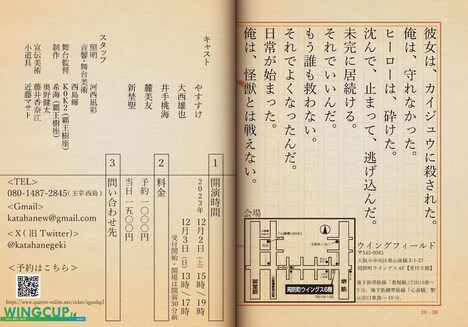 彼女は、カイジュウに殺された。
俺は、守れなかった。
ヒーローは、砕けた。
沈んで、止まって、逃げ込んだ。
未完に居続ける。
それでいいんだ。
もう誰も救わない。
それでよくなったんだ。
日常が始まった。
俺は、怪獣とは戦えない。
会場
ウイングフィールド
〒542-0083
大阪市中央区東心斎橋2-1-27
周防町ウイングス6F
周防町ウイングス6階
28－29
キャスト
やすすけ
大西雄也
井手桃海
麓美友
新埜聖
スタッフ
照明 河西凪彩
音響・舞台美術
西島輝
制作 希海(覇王樹座)
舞台監督 K0K2(覇王樹座)
奥野健太
宣伝美術 藤井香奈江
小道具 近藤マサト
1 開演時間
2023年
12月2日(土) 15時/19時
12月3日(日) 13時/17時
受付開始・開場は開演30分前
2 料金
予約 一〇〇〇円
当日 一五〇〇円
3 問い合わせ先
<TEL>
080-1487-2845(主宰 西島)
<Gmail>
katahanew@gmail.com
<X(旧Twitter)>
@katahanegeki
<予約はこちら>
WINGCUP